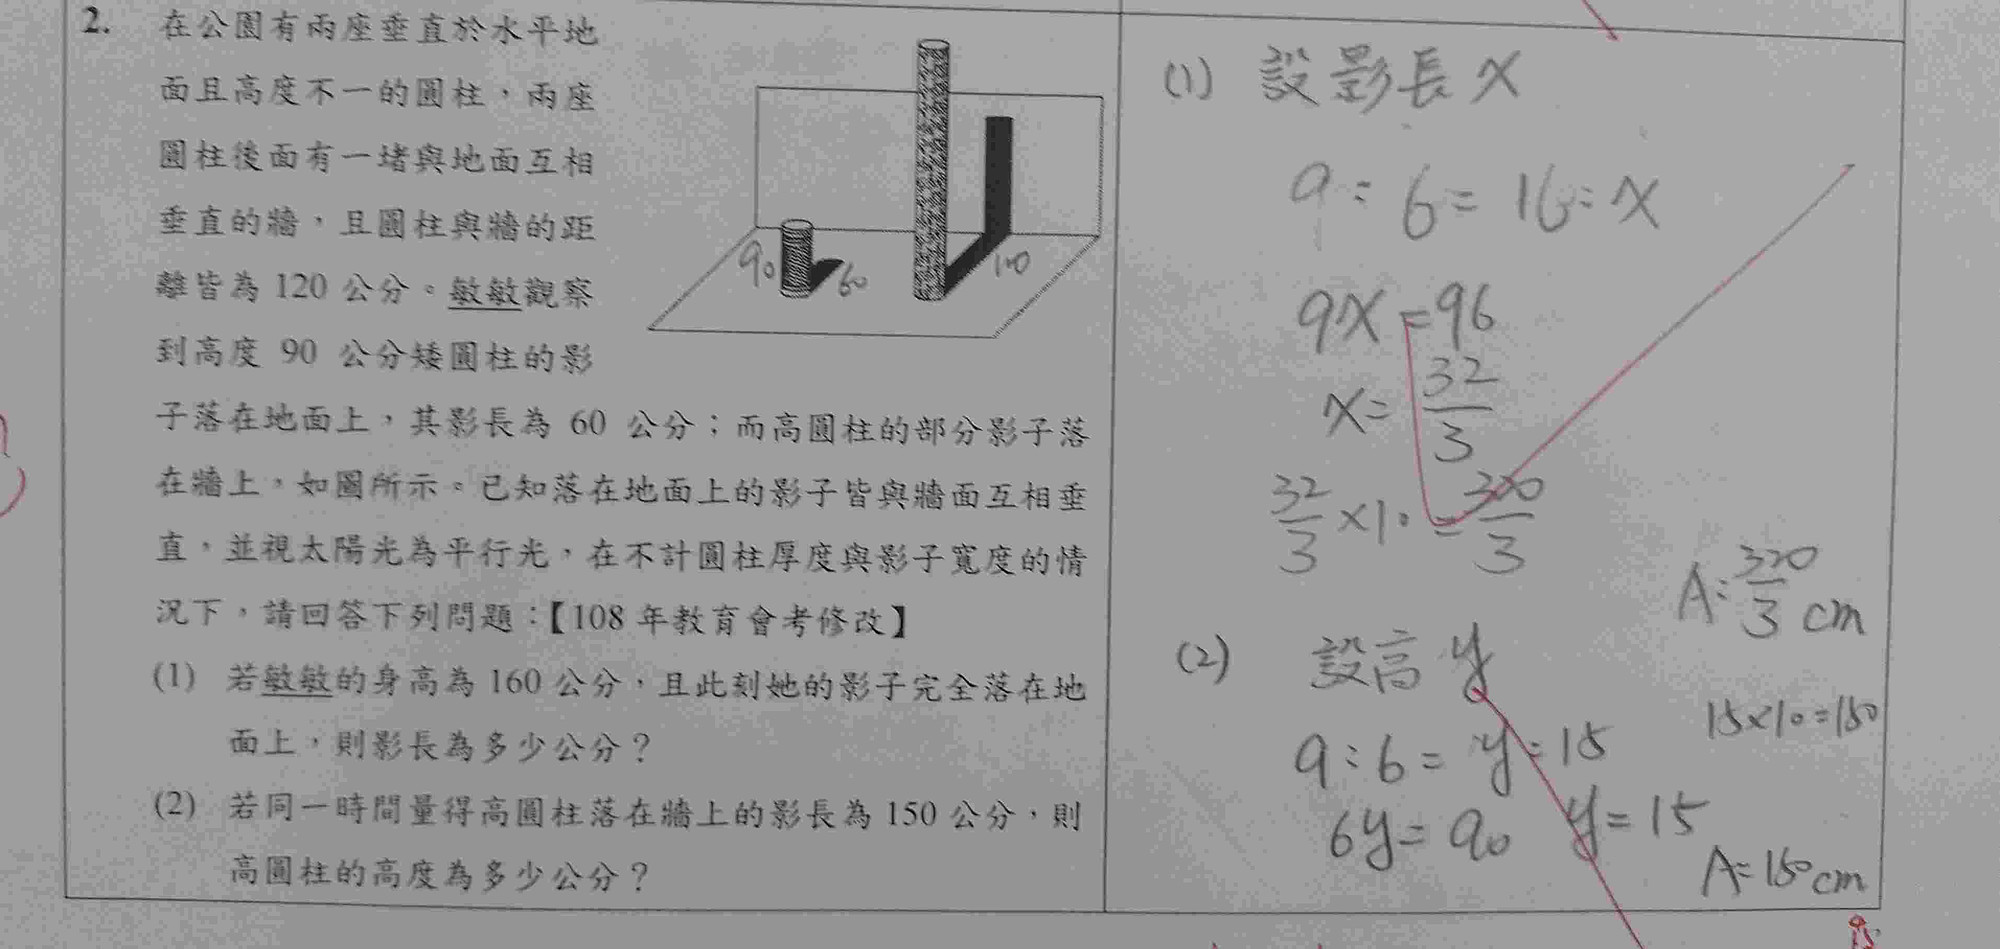 2. 在公園有兩座垂直於水平地
面且高度不一的圓柱，兩座
圓柱後面有一堵與地面互相
垂直的牆，且圓柱與牆的距
離皆為 120 公分。敏敏觀察
到高度 90 公分矮圓柱的影
子落在地面上，其影長為 60 公分；而高圓柱的部分影子落
在牆上，如圖所示。已知落在地面上的影子皆與牆面互相垂
直，並視太陽光為平行光，在不計圓柱厚度與影子寬度的情
況下，請回答下列問題：【108 年教育會考修改】
(1) 若敏敏的身高為 160 公分，且此刻她的影子完全落在地
面上，則影長為多少公分？
(2) 若同一時間量得高圓柱落在牆上的影長為 150 公分，則
高圓柱的高度為多少公分？
90
60
(1) 設影長 x
9 : 6 = 16 : x
9x = 96
x = 32/3
32/3 × 10 = 320/3
A: 320/3 cm
(2) 設高 y
9 : 6 = y : 15
15×10=150
6y = 90 y = 15
A = 150 cm